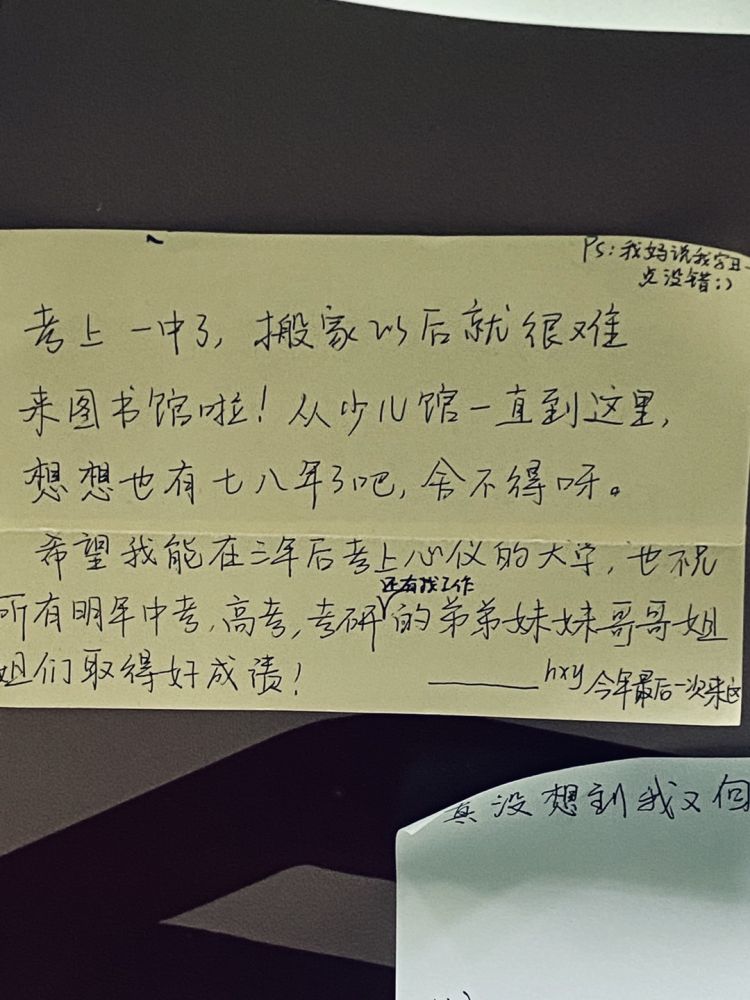 PS：我妈说我字丑一
点没错:)
考上一中了，搬家以后就很难
来图书馆啦！从少儿馆一直到这里，
想想也有七八年了吧，舍不得呀。
希望我能在三年后考上心仪的大学，也祝
还有找工作
所有明年中考，高考，考研的弟弟妹妹哥哥姐
姐们取得好成绩！
——hxy 今年最后一次来这
真没想到我又回